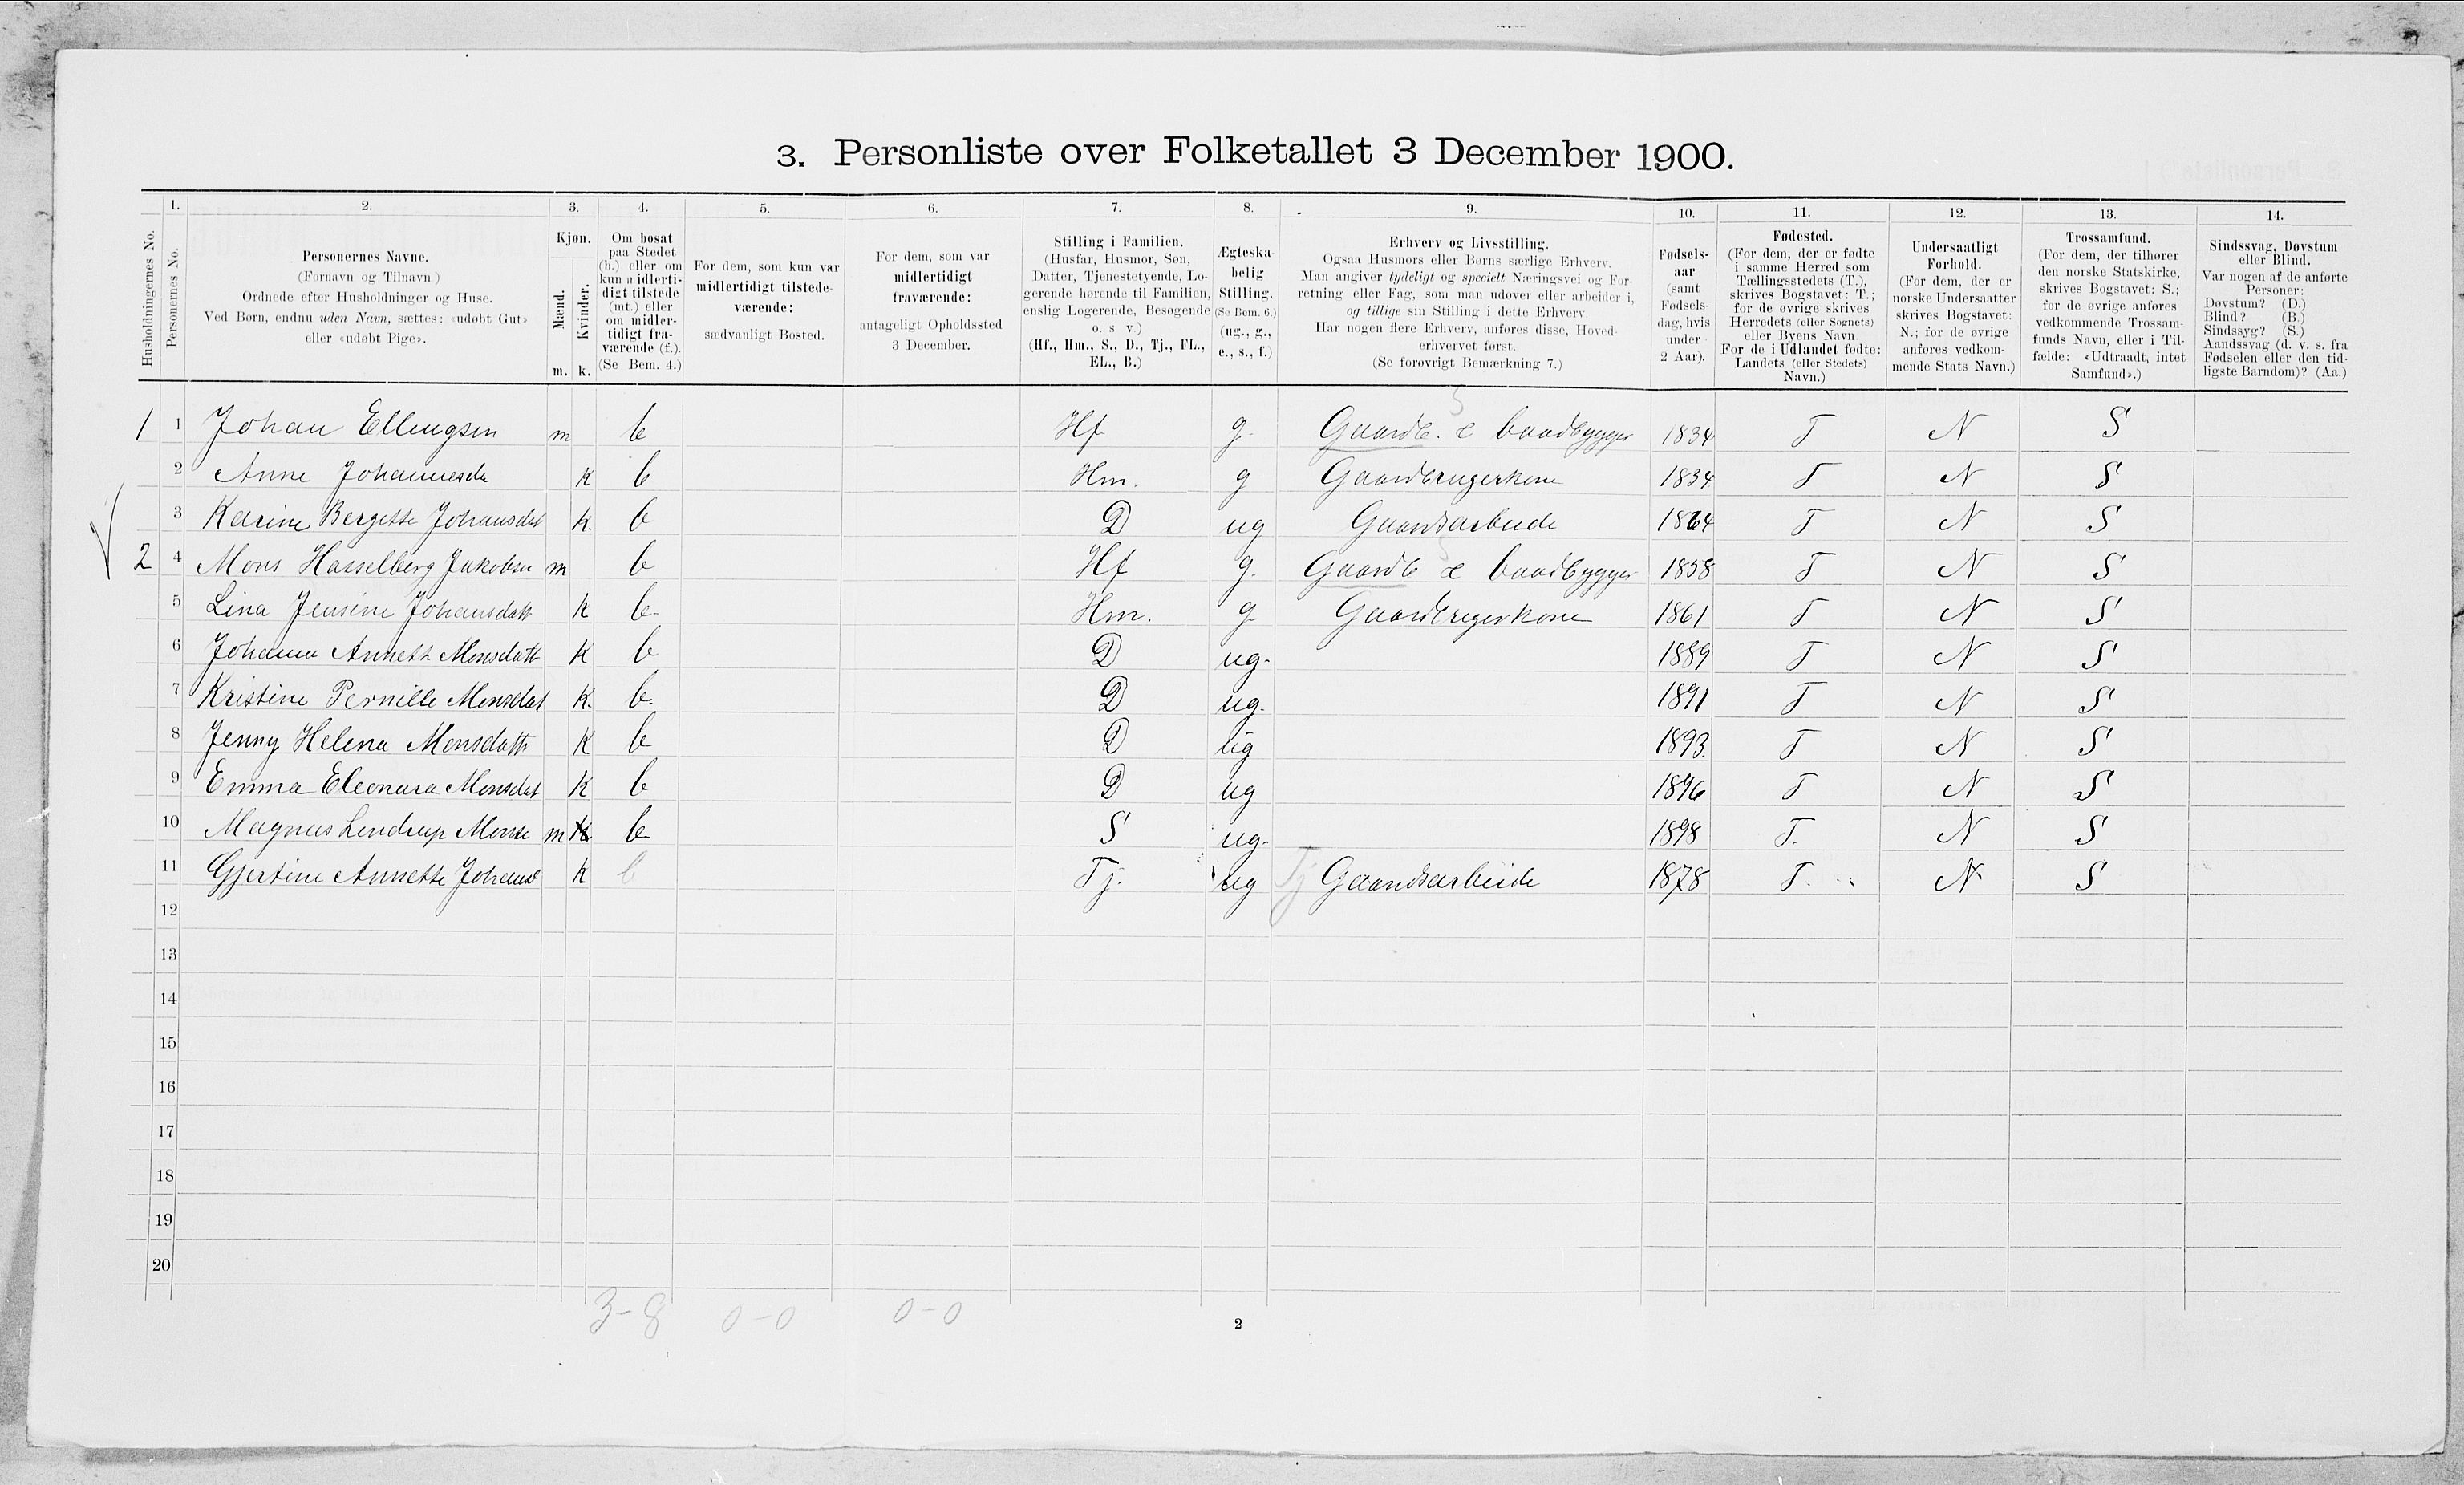 3. Personliste over Folketallet 3 December 1900.
Husholdningernes No.
1. 2. 3. 4. 5. 6. 7. 8. 9. 10. 11. 12. 13. 14.
Personernes No.
Personernes Navne.
(Fornavn og Tilnavn)
Ordnede efter Husholdninger og Huse.
Ved Børn, endnu uden Navn, sættes: «udøbt Gut»
eller «udøbt Pige».
Kjøn.
Mænd.
Kvinder.
m. k.
Om bosat
paa Stedet
(b.) eller om
kun midlerti-
digt tilstede
(mt.) eller
om midler-
tidigt fra-
værende (f.).
(Se Bem. 4.)
For dem, som kun var
midlertidigt tilstede-
værende:
sædvanligt Bosted.
For dem, som var
midlertidigt
fraværende:
antageligt Opholdssted
3 December.
Stilling i Familien.
(Husfar, Husmor, Søn,
Datter, Tjenestetyende, Lo-
gerende hørende til Familien,
enslig Logerende, Besøgende
o. s v.)
(Hf., Hm., S., D., Tj., FL.,
EL., B.)
Ægteska-
belig
Stilling.
(Se Bem. 6.)
(ug., g.,
e., s., f.)
Erhverv og Livsstilling.
Ogsaa Husmors eller Børns særlige Erhverv.
Man angiver tydeligt og specielt Næringsvei og For-
retning eller Fag, som man udøver eller arbeider i,
og tillige sin Stilling i dette Erhverv.
Har nogen flere Erhverv, anføres disse, Hoved-
erhvervet først.
(Se forøvrigt Bemærkning 7.)
Fødsels-
aar
(samt
Fødsels-
dag, hvis
under
2 Aar).
Fødested.
(For dem, der er fødte
i samme Herred som
Tællingsstedets (T.),
skrives Bogstavet: T.;
for de øvrige skrives
Herredets (eller Sognets)
eller Byens Navn
For de i Udlandet fødte:
Landets (eller Stedets)
Navn.)
Undersaatligt
Forhold.
(For dem, der er
norske Undersaatter
skrives Bogstavet:
N.; for de øvrige
anføres vedkom-
mende Stats Navn.)
Trossamfund.
(For dem, der tilhører
den norske Statskirke,
skrives Bogstavet: S.;
for de øvrige anføres
vedkommende Trossam-
funds Navn, eller i Til-
fælde: «Udtraadt, intet
Samfund».)
Sindssvag, Døvstum
eller Blind.
Var nogen af de anførte
Personer:
Døvstum? (D.)
Blind? (B.)
Sindssyg? (S.)
Aandssvag (d. v. s. fra
Fødselen eller den tid-
ligste Barndom)? (Aa.)
1 1 Johan Ellingsen m b Hf g. Gaardb. & baadbygger 1834 T N S
2 Anne Johannesda K b Hm. g Gaardbrugerkone 1834 T N S
3 Karine Bergette Johansdat K. b D ug Gaardsarbeide 1864 T N S
2 4 Mons Hasselberg Jakobsen m b Hf g. Gaardb & baadbygger 1858 T N S
5 Lina Jensine Johansdatt K b Hm. g Gaardbrugerkone 1861 T N S
6 Johanna Annette Monsdatt K b D ug. 1889 T N S
7 Kristine Pernille Monsdat K. b. D ug. 1891 T N S
8 Jenny Helena Monsdatt K b D ug 1893. T N S
9 Emma Eleonara Monsdat K b D ug 1896 T N S
10 Magnus Lendrup Monse m b S ug. 1898 T. N S
11 Gjertine Annette Johansd K b Tj. ug Tj Gaardsarbeide 1878 T. N S
12
13
14
15
16
17
18
19
20
3-8 0-0 0-0
2